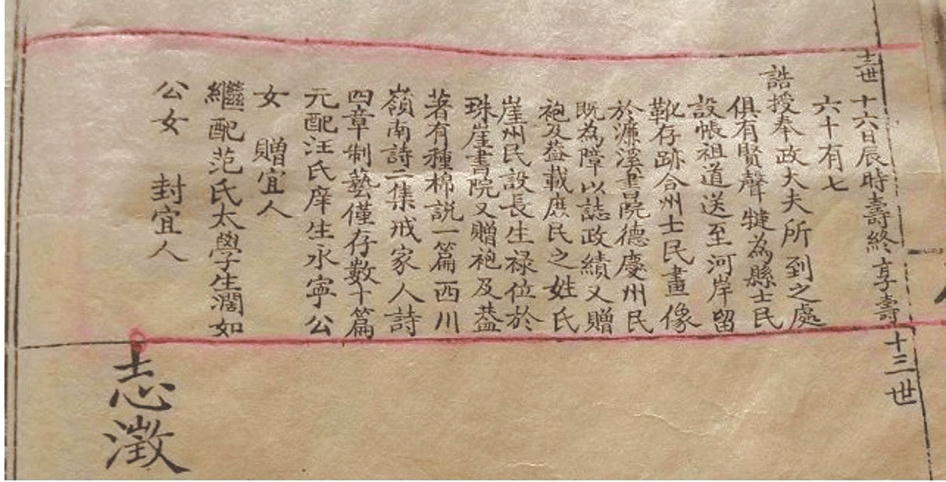 十二世
十六日辰時壽終享壽
六十有七
誥授奉政大夫所到之處
俱有賢聲犍為縣士民
設帳祖道送至河岸留
靴存跡合州士民畫像
於濂溪書院德慶州民
既為障以誌政績又贈
袍及葢載庶民之姓氏
崖州民設長生禄位於
珠崖書院又贈袍及葢
著有種棉説一篇西川
嶺南詩二集戒家人詩
四章制藝僅存數十篇
元配汪氏庠生永寧公
女 贈宜人
繼配范氏太學生濶如
公女 封宜人
十三世
志澂